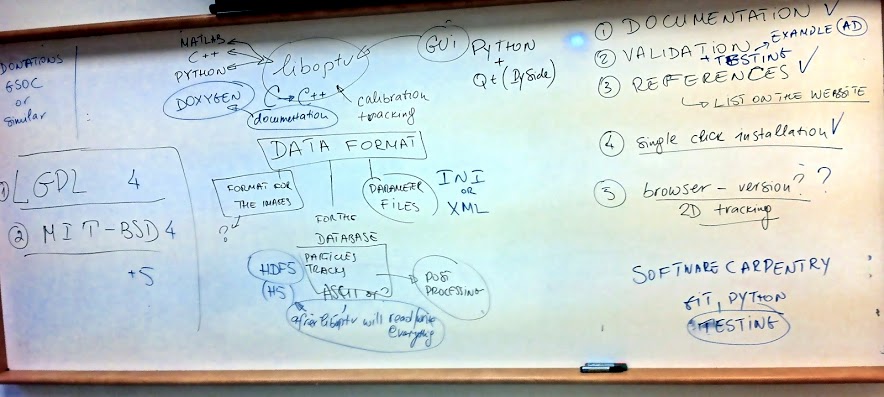 DONATIONS
GSOC
or
Similar
① LGDL 4
② MIT-BSD 4
+5
MATLAB
C++
PYTHON
liboptv
C → C++
DOXYGEN
documentation
calibration
tracking
GUi
PYTHON
+
Qt (PySide)
DATA FORMAT
FORMAT FOR
THE IMAGES
?
FOR THE
DATABASE
PARTICLES
TRACKS
ASCII or ?
HDF5
(H5)
POST
PROCESSING
after liboptv will read/write
everything
PARAMETER
FILES
INI
OR
XML
① DOCUMENTATION ✓
② VALIDATION → EXAMPLE AD
+ TESTING
③ REFERENCES ✓
↳ LIST ON THE WEBSITE
④ single click installation ✓
5 browser-version? ?
2D tracking
SOFTWARE CARPENTRY
GIT, PYTHON
TESTING